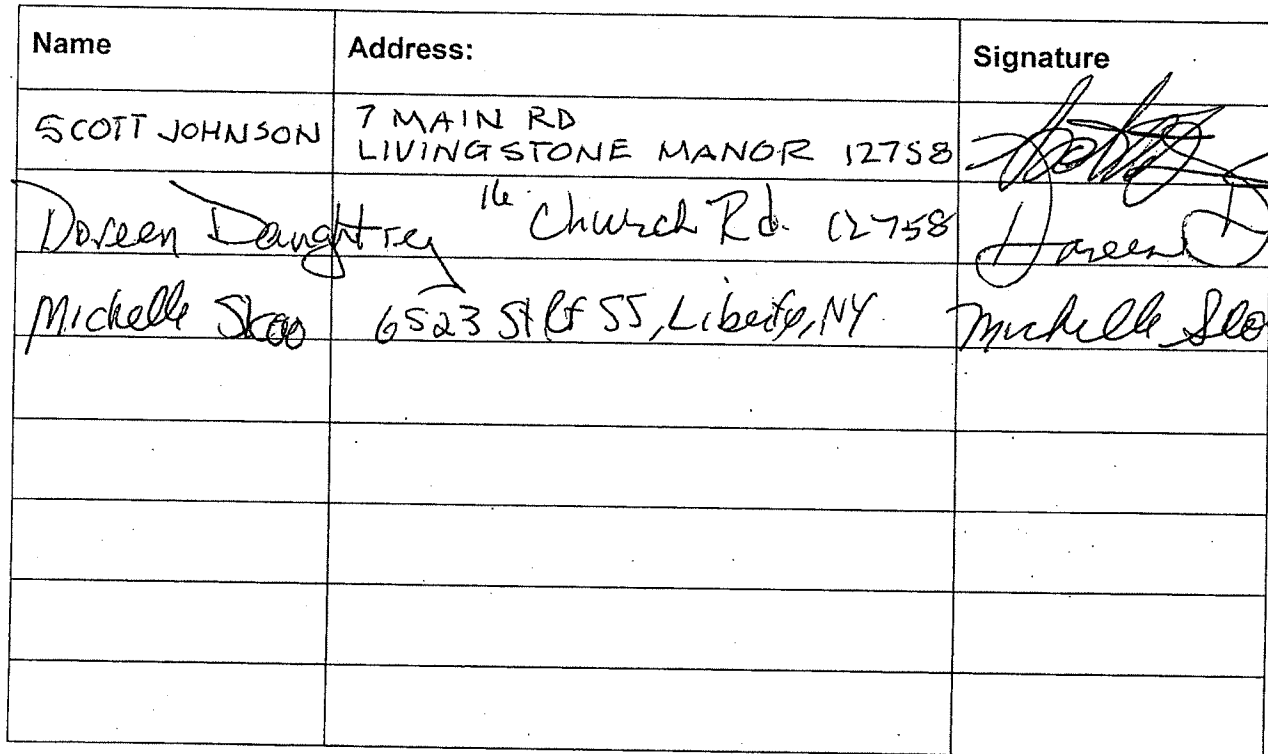 Name Address: Signature
SCOTT JOHNSON 7 MAIN RD
LIVINGSTONE MANOR 12758
Doreen Daughtrey 16 Church Rd. 12758 Doreen D
Michelle 6523 St Rt 55, Liberty, NY. Michelle